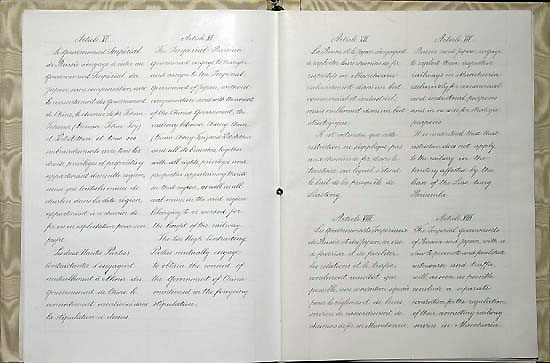 Article VI
Le Gouvernement Impérial
de Russie s'engage à céder au
Gouvernement Impérial du
Japon, sans compensation, avec
le consentement du Gouvernement
de Chine, le chemin de fer de
et tous ses
embranchements avec tous les
droits, privilèges et propriétés
appartenant dans cette région,
ainsi que toutes les mines de
charbon dans la dite région,
appartenant à ce chemin de
fer ou en exploitation pour son
profit.
Les deux Hautes Parties
Contractantes s'engagent
mutuellement à obtenir du
Gouvernement de Chine le
consentement mentionné dans
la stipulation ci-dessus.
Article VI
The Imperial Russian
Government engage to transfer
and assign to the Imperial
Government of Japan, without
compensation and with the consent
of the Chinese Government, the
railway between Chang-chun
and Port Arthur
and all its branches, together
with all rights, privileges and
properties appertaining thereto
in that region, as well as all
coal mines in the said region
belonging to or worked for
the benefit of the railway.
The two High Contracting
Parties mutually engage
to obtain the consent of
the Government of China
mentioned in the foregoing
stipulation.
Article VII
La Russie et le Japon s'engagent
à exploiter leurs chemins de fer
respectifs en Mandchourie
exclusivement dans un but
commercial et industriel,
mais nullement dans un but
stratégique.
Il est entendu que cette
restriction ne s'applique pas
aux chemins de fer dans le
territoire sur lequel s'étend
le bail de la presqu'île de
Liaotong.
Article VIII
Les Gouvernements Impériaux
de Russie et du Japon, en vue
de favoriser et de faciliter
les relations et le trafic,
concluront, aussitôt que
possible, une convention séparée
pour le règlement de leurs
services de raccordement de
chemins de fer en Mandchourie.
Article VII
Russia and Japan engage
to exploit their respective
railways in Manchuria
exclusively for commercial
and industrial purposes
and in no wise for strategic
purposes.
It is understood that that
restriction does not apply
to the railway in the
territory affected by the
lease of the Liao-tung
Peninsula.
Article VIII
The Imperial Governments
of Russia and Japan, with a
view to promote and facilitate
intercourse and traffic,
will, as soon as possible,
conclude a separate
convention for the regulation
of their connecting railway
services in Manchuria.